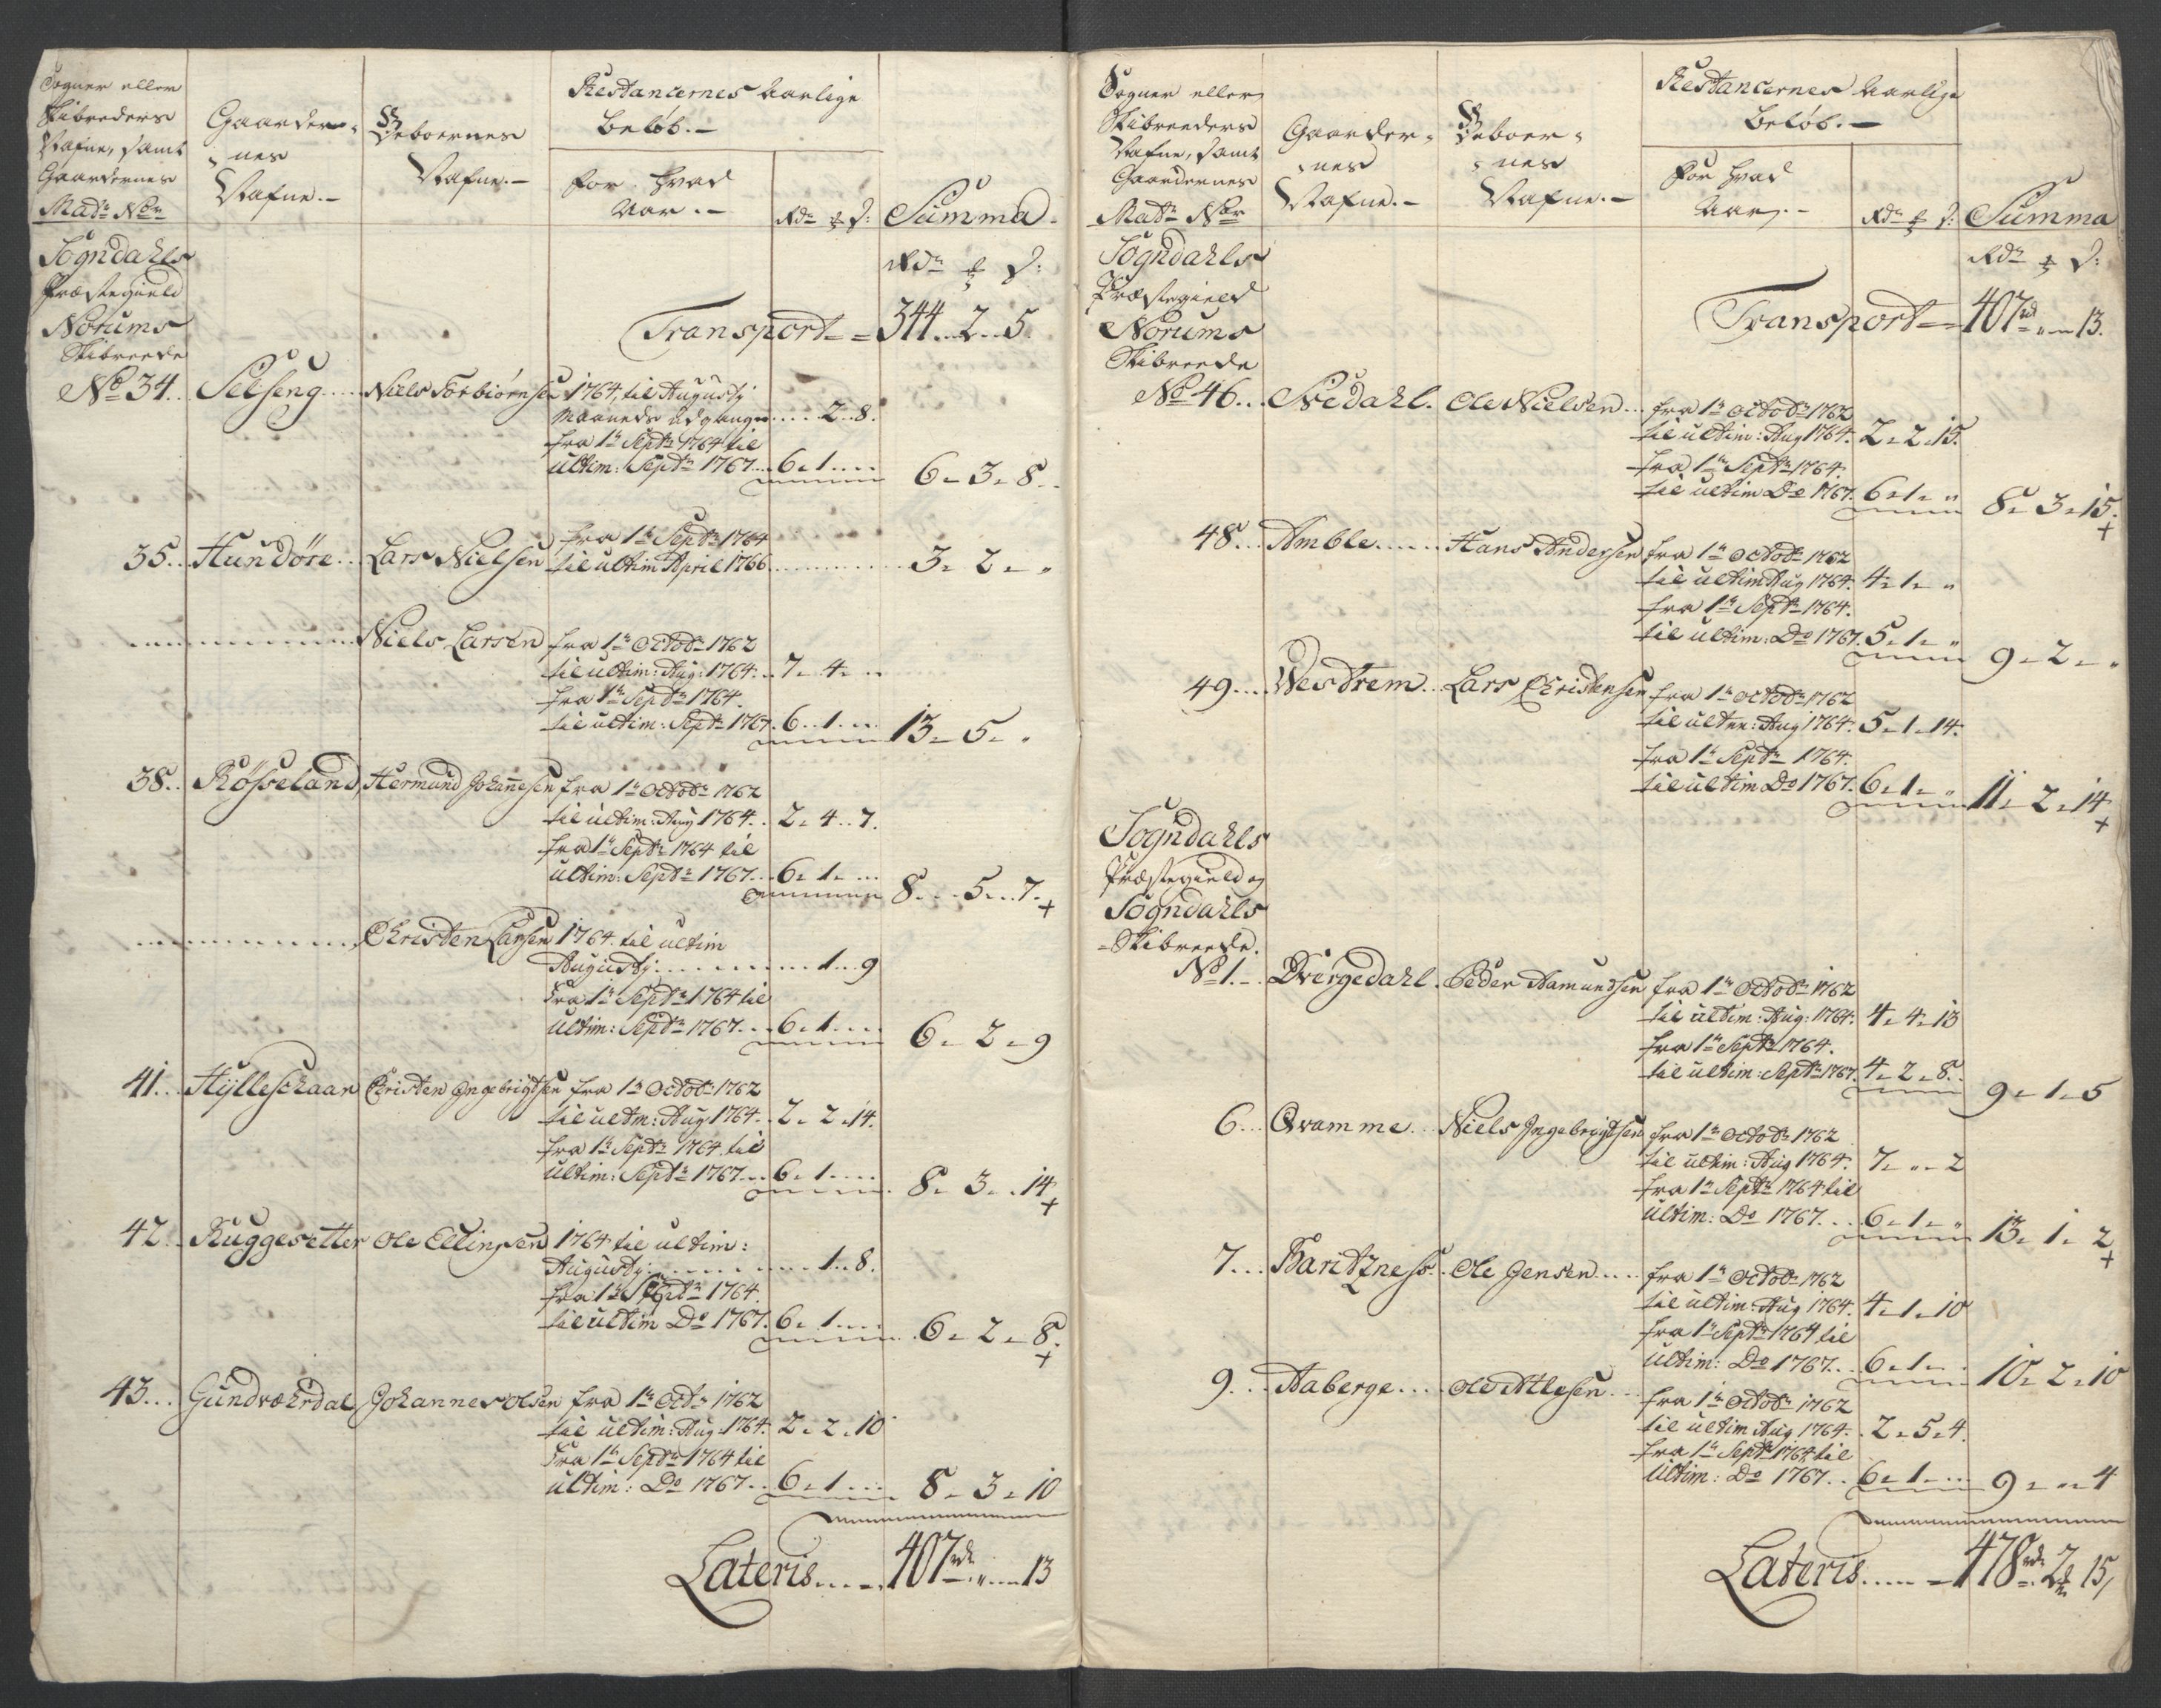 Sogner eller
Skibreeders
Nafne, samt
Gaardernes
Matr Nor
Gaarder-
nes
Nafne.-
Beboernes
Nafne.-
Restancernes Aarlige
Beløb.-
For hvad
Aar.-
Rdr ß
Summa
Rdr ß
Sogndahls
Præstegield
Norums
Skibreede
Transport = 344..2..5
No 34. Selseng.... Niels Torbiørnsen 1764, til Augusty
Maaneds Udgang.... 2..8.
fra 1te Septr 1764 til
ultim: Septr 1767... 6.1.... 6. 3. 8.
35.. Hundøre... Lars Nielsen fra 1te Septr 1764
til ultim April 1766............ 3. 2. "
Niels Larsen fra 1te Octobr 1762
til ultim: Aug: 1764.. 7. 4. ..
fra 1te Septr 1764.
til ultim: Septr 1767. 6..1.... 13. 5. "
38.. Røsseland, Hermund Johannesen fra 1te Octobr 1762
til ultim: Aug 1764.. 2. 4..7.
fra 1te Septr 1764 til
ultim: Septr 1767... 6. 1.... 8...5...7. +
Christen Larsen 1764. til ultim
Augusty............ 1...9
Fra 1te Septr 1764 til
ultim: Septr 1767... 6.1.... 6. 2. 9
41... Hylleschaar Christen Ingebrigtsen fra 1te Octobr 1762
til ultm: Aug 1764.. 2. 2.14.
fra 1te Septr 1764 til
ultim: Septr 1767... 6.1.... 8. 3..14 +
42.. Ruggesetter Ole Ellingsen 1764 til ultim:
Augusty............ 1..8.
fra 1te Septr 1764.
til ultim Do 1767. 6. 1.... 6. 2. 8. +
43... Gundvahrdal, Johannes Olsen fra 1te Octr 1762
til ultim: Aug. 1764. 2. 2.10
Fra 1te Septr 1764 til
ultim: Do 1767.. 6.1.... 8. 3. 10
Lateris..... 407rd. " 13
Sogner eller
Skibreeders
Nafne, samt
Gaardernes
Matr Nor
Gaarder-
nes
Nafne.-
Beboer-
nes
Nafne.-
Restancernes Aarlige
Beløb.-
For hvad
Aar.-
Rdr ß
Summa
Rdr ß
Sogndahls
Præstegield
Norums
Skibreede
Transport = 407rd " 13.
No 46... Nedahl. Ole Nielsen... fra 1te Octobr 1762
til ultim: Aug 1764. 2. 2.15.
fra 1te Septr 1764.
til ultim Do 1767. 6.1. " 8. 3.15. +
48... Amble...... Hans Andersen fra 1te Octobr 1762
til ultim Aug 1764. 4. 1. "
fra 1te Septr 1764.
til ultim: Do 1767. 5. 1. " 9. 2. "
49.... Westrem.. Lars Christensen fra 1te Octobr 1762
til ultm: Aug 1764. 5.1.14.
fra 1te Septr 1764.
til ultim Do 1767. 6.1. " 11. 2.14 +
Sogndahls
Præstegield og
Sogndahls
Skibreede.
No 1.- Dvergedahl. Peder Aamundsen fra 1te Octobr 1762
til ultim: Aug: 1764. 4. 4.13
fra 1te Septr 1764.
til ultim: Septr 1767. 4. 2. 8. 9. 1. 5
6... Qvamme... Niels Ingebrigtsen fra 1te Octobr 1762
til ultim: Aug 1764. 7. ". 2
fra 1te Septr 1764 til
ultim: Do 1767... 6.1. " 13. 1. 2 +
7... Baritzness. Ole Jensen.... fra 1te Octobr 1762
til ultim: Aug 1764. 4. 1.10
fra 1te Septr 1764 til
ultim: Do 1767.. 6. 1.. 10. 2.10
9... Aaberge.... Ole Atlesen... fra 1te Octobr 1762
til ultim Aug 1764. 2. 5. 4.
fra 1te Septr 1764 til
ultim: Do 1767.. 6. 1.... 9. ". 4
Lateris..... 478rd. 2ß 15,